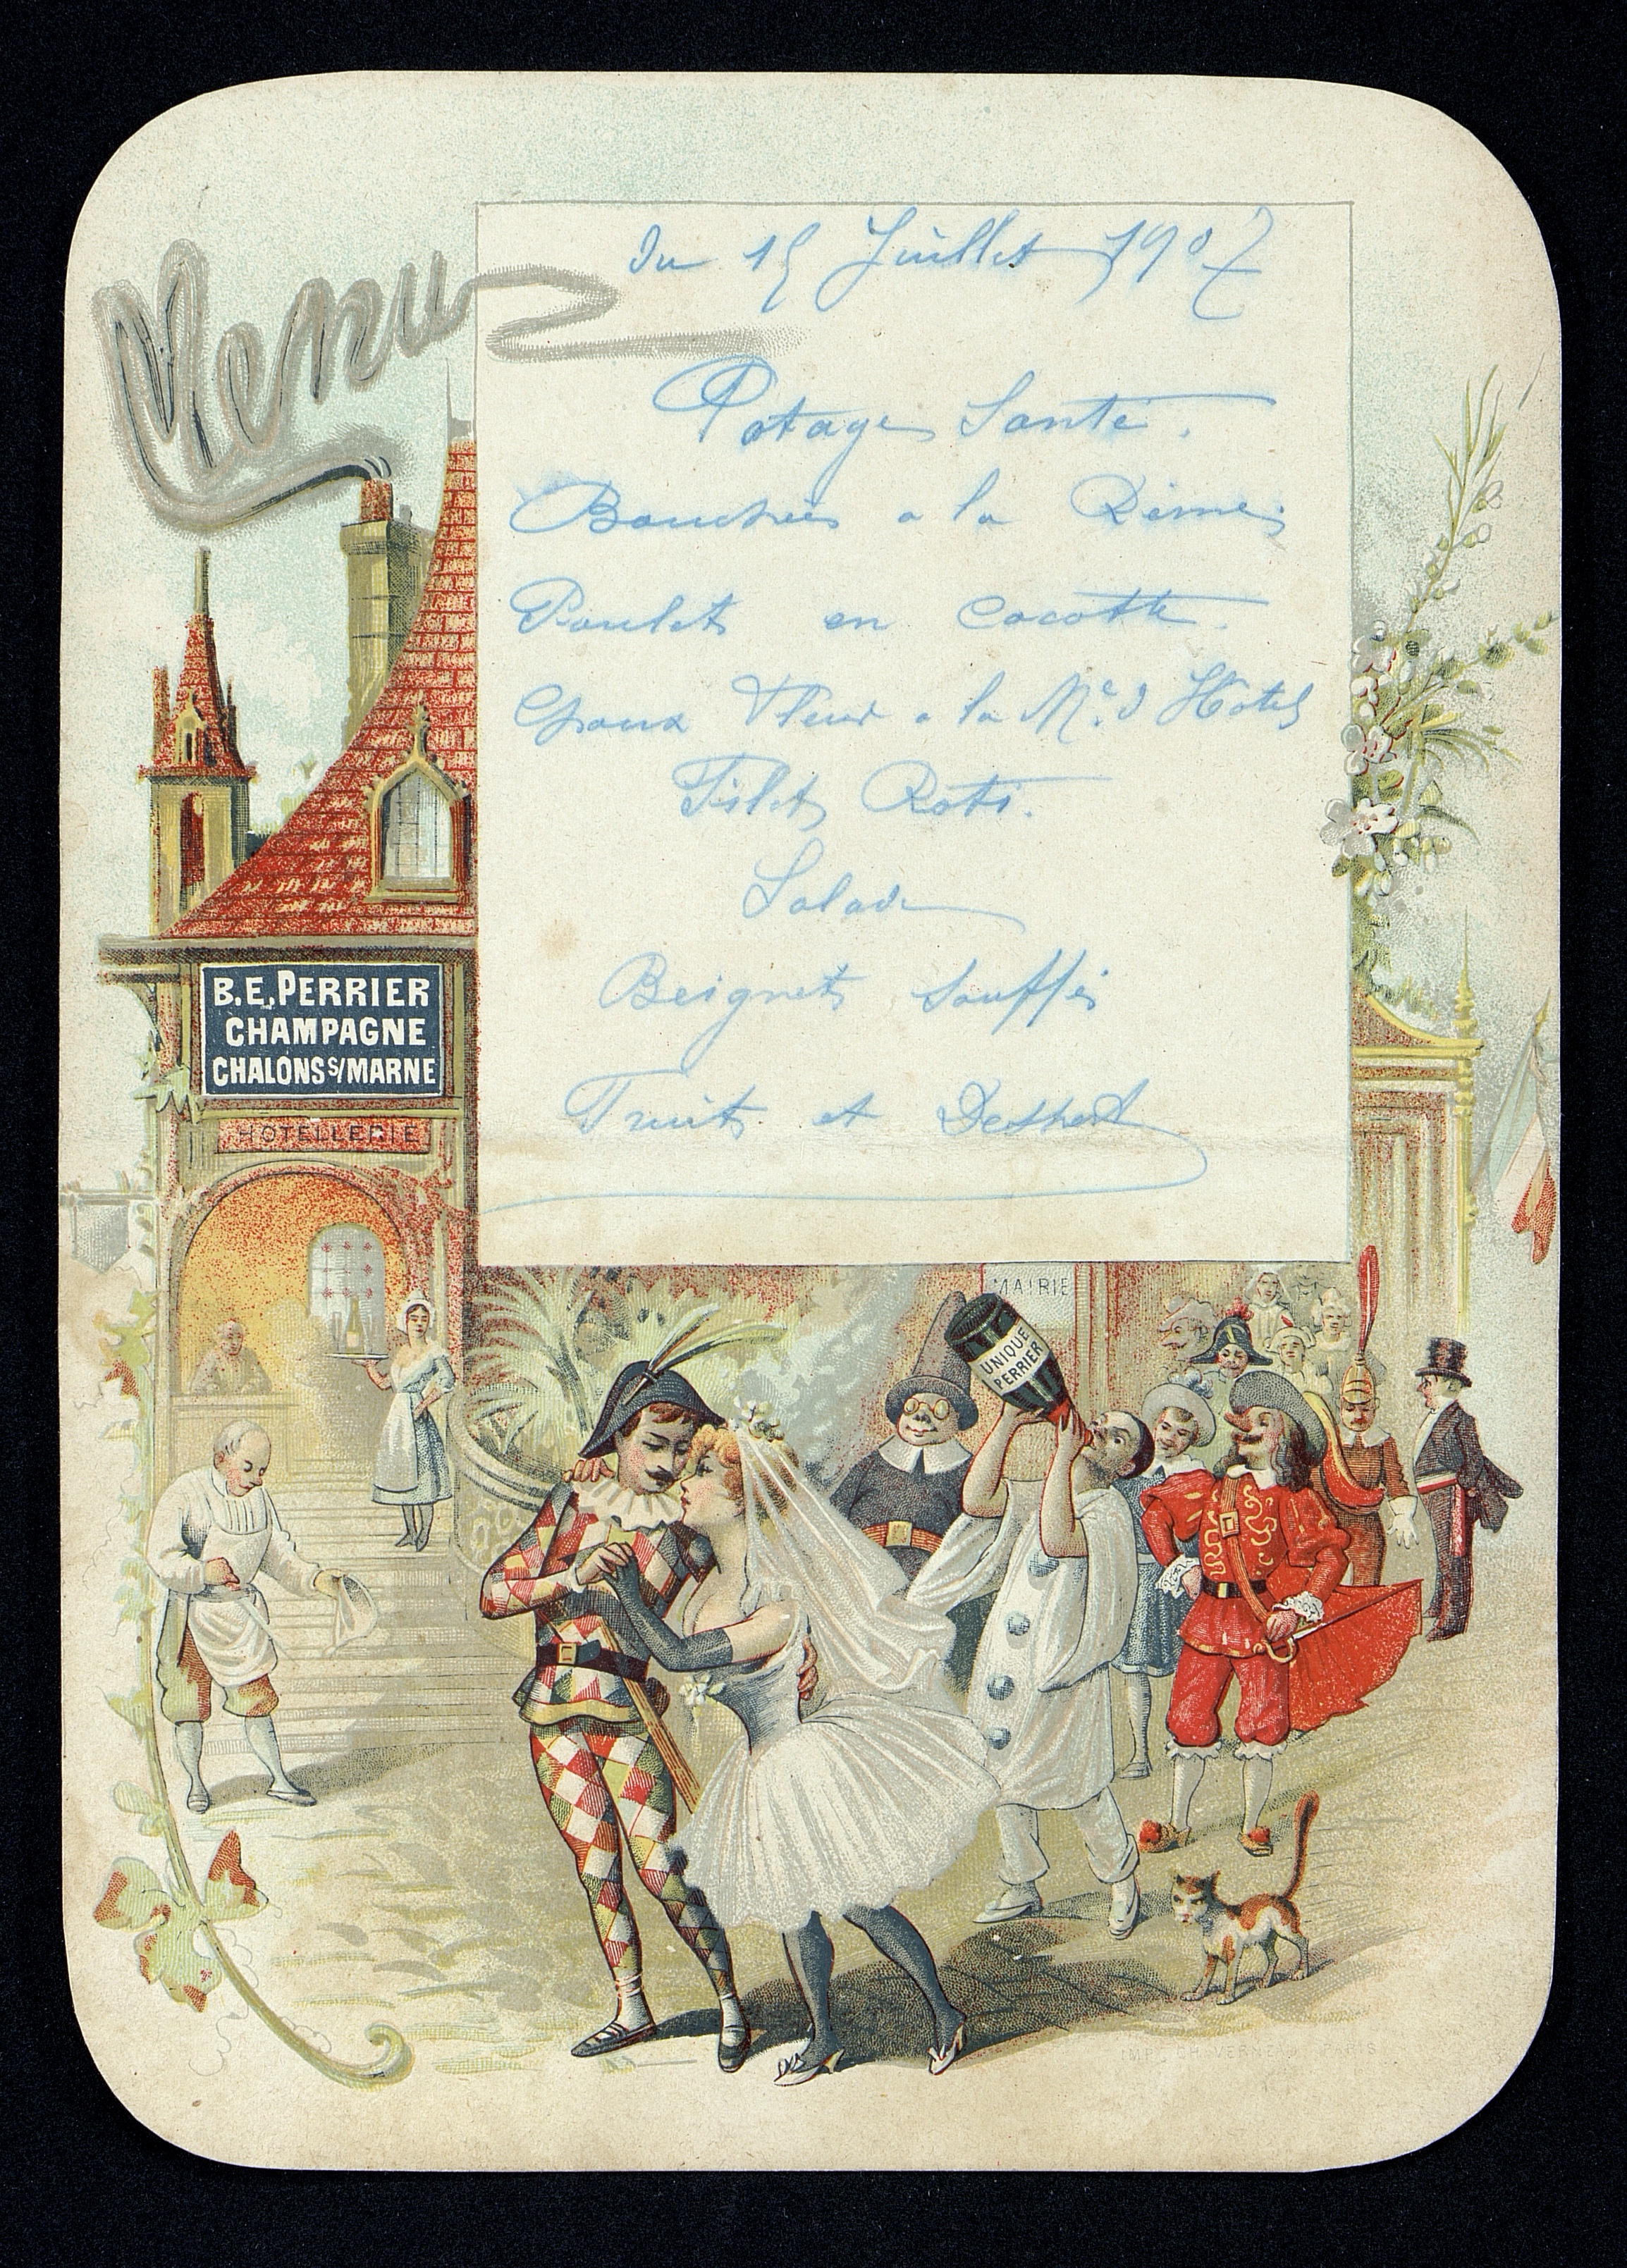 Menu
Du 15 Juillet 1907
Potage Santé.
Bouchées a la Reine
Poulet en Cocotte.
Choux Fleur a la Me. d Hotel
Filet Roti.
Salade
Beignets Soufflés
Fruits et Dessert
B.E. PERRIER
CHAMPAGNE
CHALONS S/MARNE
HOTELLERIE
MAIRIE
UNIQUE
PERRIER
IMP.